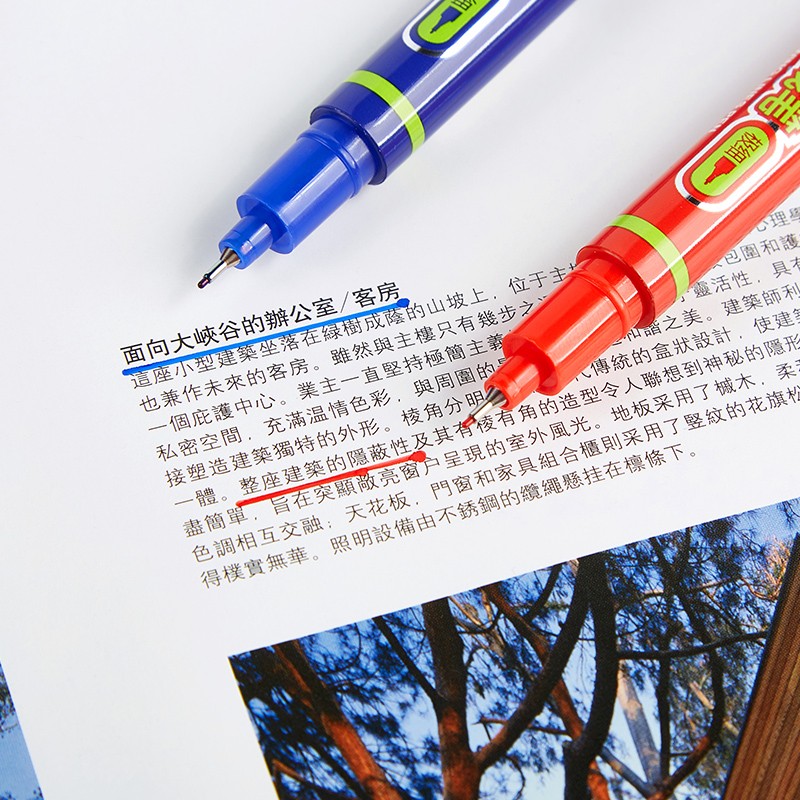 极细
极细
面向大峽谷的辦公室/客房
這座小型建築坐落在綠樹成蔭的山坡上，位于主
心理學
也兼作未來的客房。雖然與主樓只有幾步之
包圍和護
一個庇護中心。業主一直堅持極簡主義
靈活性，具有
私密空間，充滿温情色彩，與周圍的
和諧之美。建築師利
接塑造建築獨特的外形。棱角分明
代傳統的盒狀設計，使建
一體。整座建築的隱蔽性及其有棱有角的造型令人聯想到神秘的隱形
盡簡單，旨在突顯敞亮窗户呈現的室外風光。地板采用了槭木，柔
色調相互交融；天花板，門窗和家具組合櫃則采用了竪紋的花旗松
得樸實無華。照明設備由不銹鋼的纜繩懸挂在檩條下。